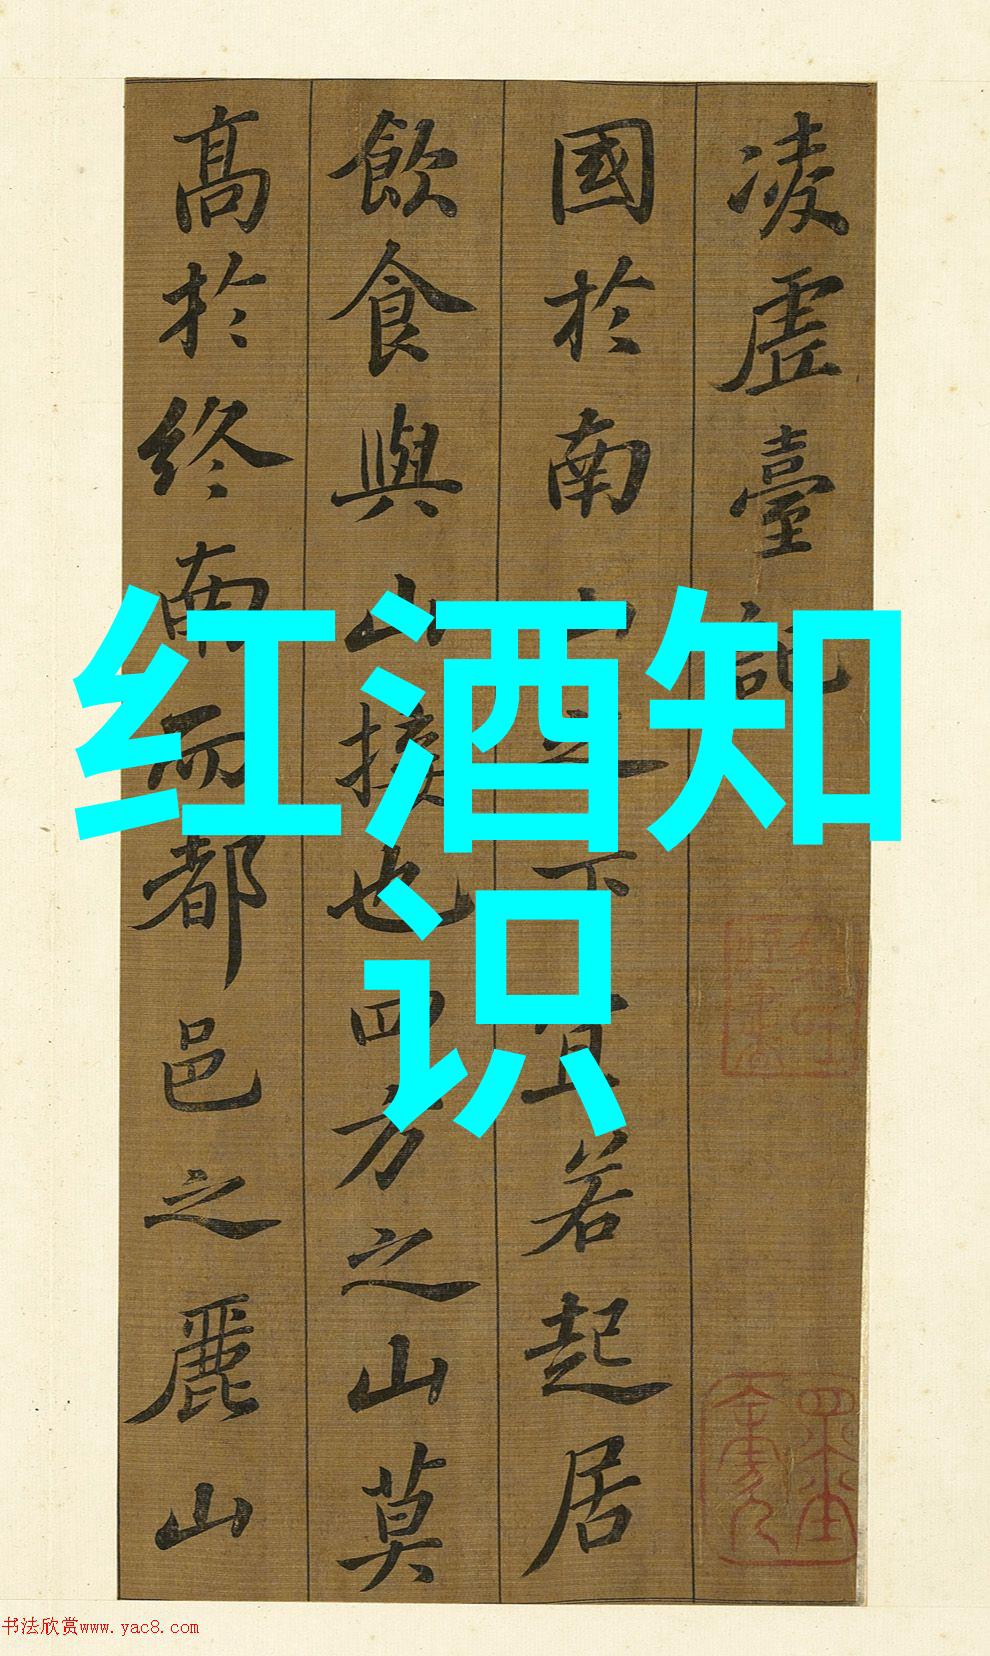 凌虛臺記
國於南山之下宜若起居
飲食與山接也四方之山莫
高於終南而都邑之麗山
红酒知
识
书法欣赏www.yac8.com